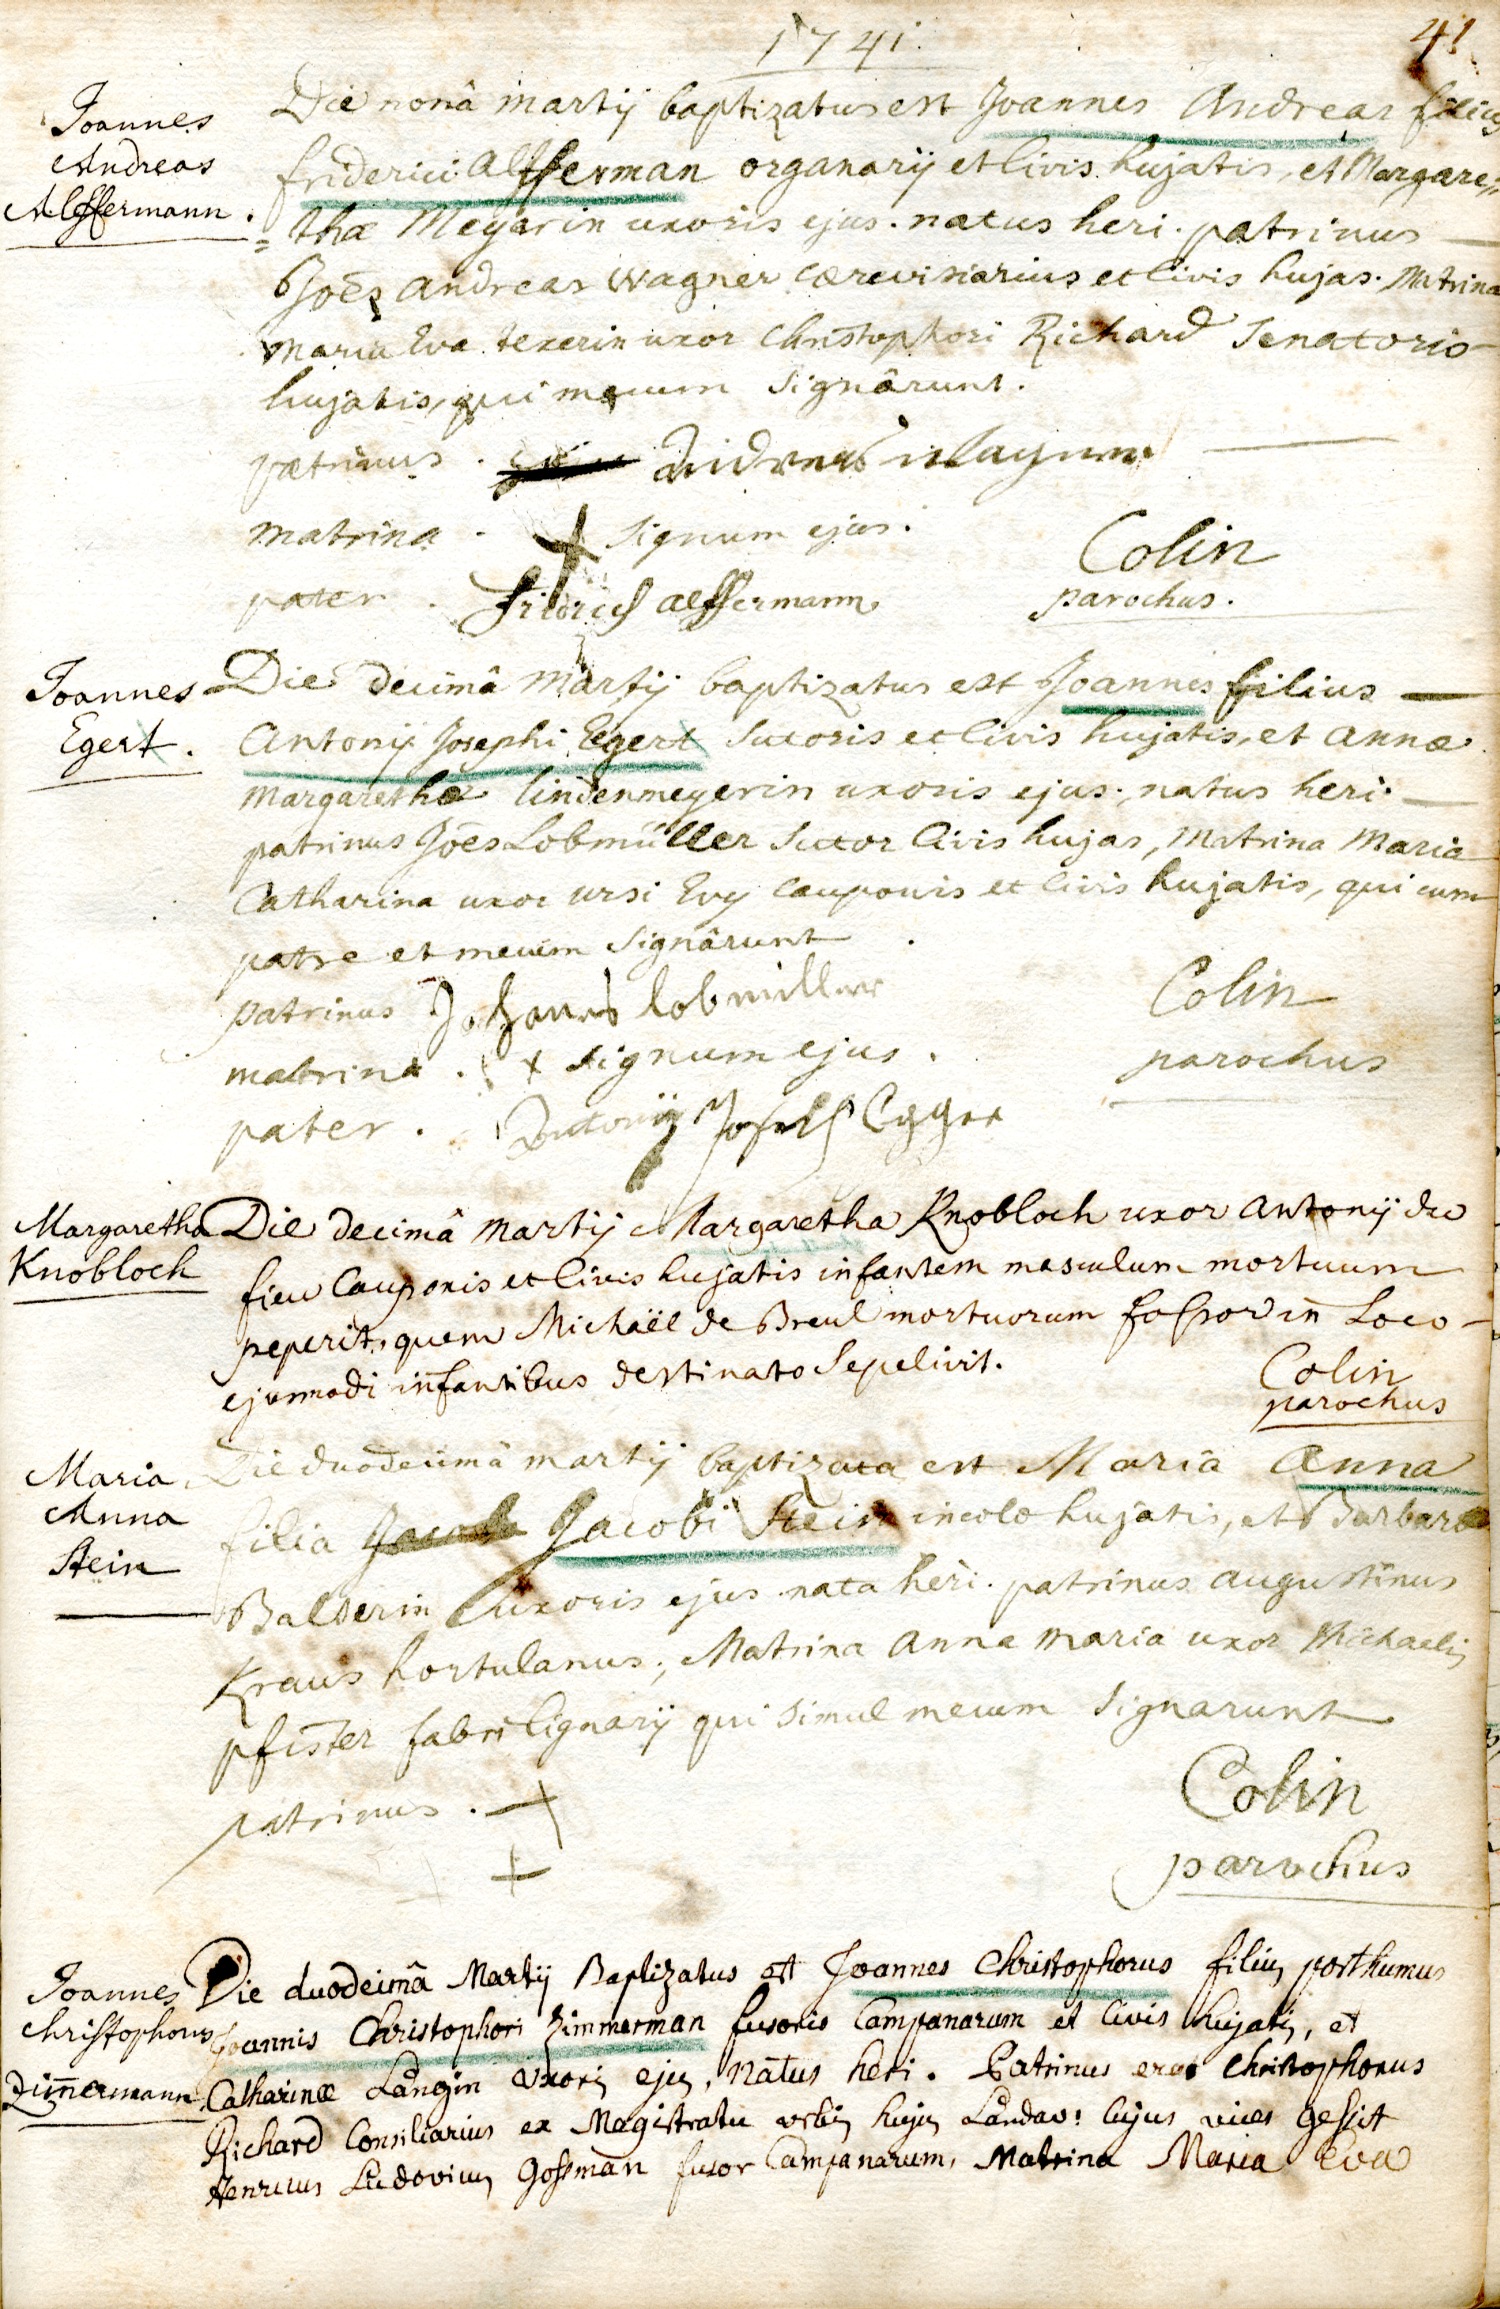 1741.
41
Joannes
Andreas
Alffermann.
Die nonâ martij baptizatus est Joannes Andreas filius
friderici Alfferman organarij et Civis hujatis, et Margare-
=thæ Meyerin uxoris ejus. natus heri. patrinus
Joês Andreas Wagner cærevisiarius et Civis hujas. Matrina
Maria Eva texerin uxor Christophori Richard Senatoris
hujatis, qui mecum signârunt.
patrinus. Andreas Wagner
matrina. + signum ejus.
Colin
pater. fridrich alffermann
parochus.
Joannes
Egert.
Die decimâ Martij baptizatus est Joannes filius
Antonij Josephi Egert Sutoris et Civis hujatis, et Annæ
Margarethæ lindenmeyerin uxoris ejus, natus heri.
patrinus Joês Lobmüller Sutor Civis hujas, Matrina Maria
Catharina uxor Ursi Evy Cauponis et Civis hujatis, qui cum
patre et mecum signârunt.
patrinus Johanes lobmiller
Colin
matrina. + signum ejus.
parochus
pater. Antonij Joseph Egger
Margaretha
Knobloch
Die decimâ Martij Margaretha Knobloch uxor Antonij du
fieu Cauponis et Civis hujatis infantem masculum mortuum
peperit, quem Michaël de Breul mortuorum fossor in Loco
ejusmodi infantibus destinato Sepelivit.
Colin
parochus
Maria
Anna
Stein
Die duodecimâ martij baptizata est Maria Anna
filia Jacobi Stein incolæ hujatis, et Barbaræ
Balderin uxoris ejus nata heri. patrinus augustinus
Kraus hortulanus; Matrina Anna Maria uxor Michaelis
pfister fabri lignarij qui simul mecum signarunt
patrinus. +
+
Colin
parochus
Joannes
Christophorus
Zim̄ermann
Die duodecimâ Martij Baptizatus est Joannes Christophorus filius posthumus
Joannis Christophori Zimmerman fusoris Campanarum et Civis hujatis, et
Catharinæ Långin uxoris ejus, natus heri. Patrinus erat Christophorus
Richard Consiliarius ex Magistratu urbis hujus Landav: cujus vices gessit
Henricus Ludovicus Gossman fusor Campanarum, Matrina Maria Eva